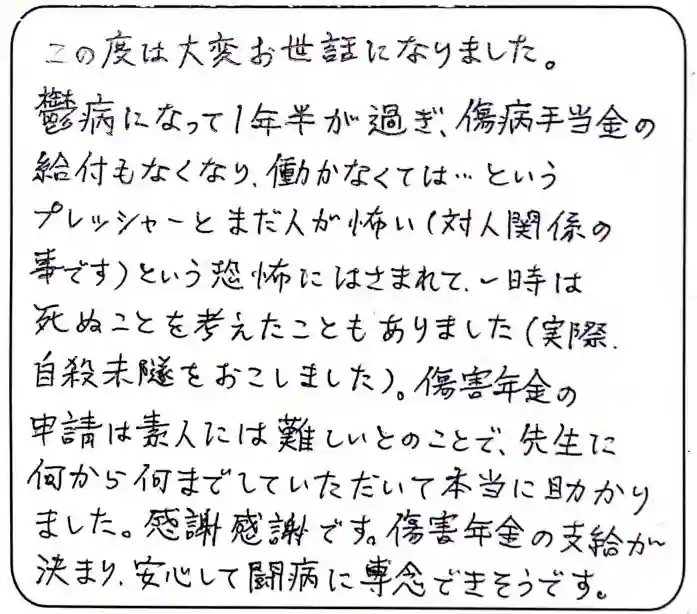 この度は大変お世話になりました。
鬱病になって1年半が過ぎ、傷病手当金の
給付もなくなり、働かなくては…という
プレッシャーとまだ人が怖い(対人関係の
事です)という恐怖にはさまれて、一時は
死ぬことを考えたこともありました(実際、
自殺未隧をおこしました)。傷害年金の
申請は素人には難しいとのことで、先生に
何から何までしていただいて本当に助かり
ました。感謝感謝です。傷害年金の支給が
決まり、安心して闘病に専念できそうです。